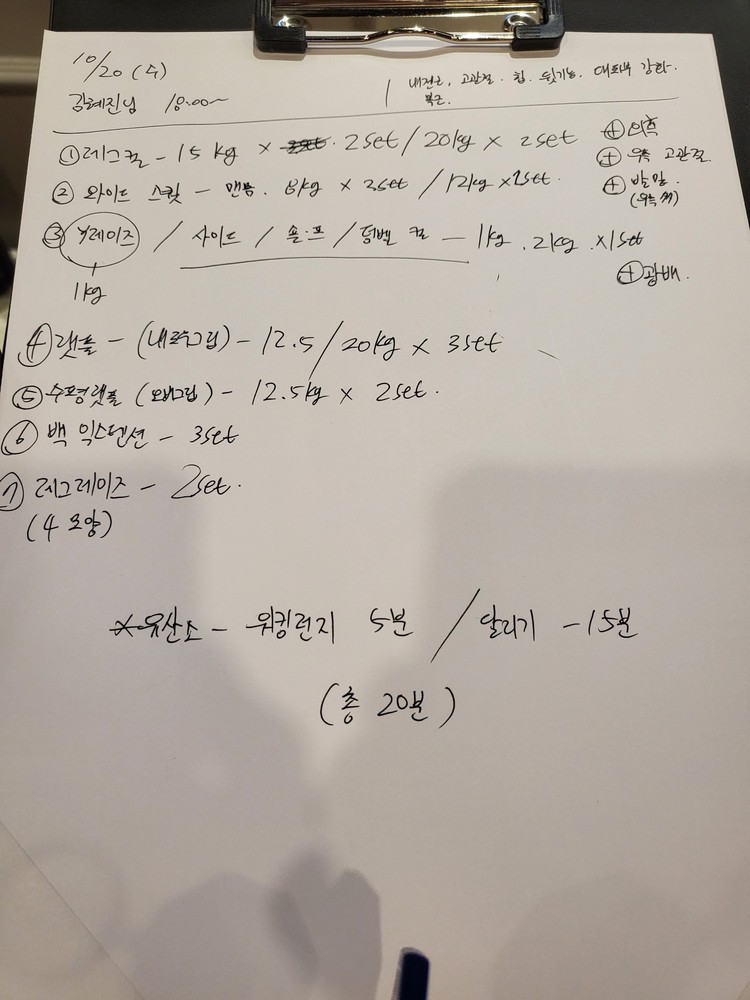 10/20 (수)
김혜진님 10:00~
내전근, 고관절. 힙. 뒷기능. 대퇴부 강화.
복근.
① 레그컬 - 15 kg × 2set / 20kg × 2set
② 와이드 스쿼트 - 맨몸. 8kg × 2set / 12kg × 1set.
③ Y레이즈 / 사이드 / 숄.프 / 덤벨 컬 - 1kg. 2kg. × 1set
1kg
⊕
⊕ 우측 고관절.
⊕ 발목.
⊕ 광배.
④ 랫풀 - (내로우그립) - 12.5 / 20kg × 3set
⑤ 수평랫풀 (오버그립) - 12.5kg × 2set.
⑥ 백 익스텐션 - 3set
⑦ 레그레이즈 - 2set.
(4 모양)
×유산소 - 워킹런지 5분 / 달리기 - 15분
(총 20분)